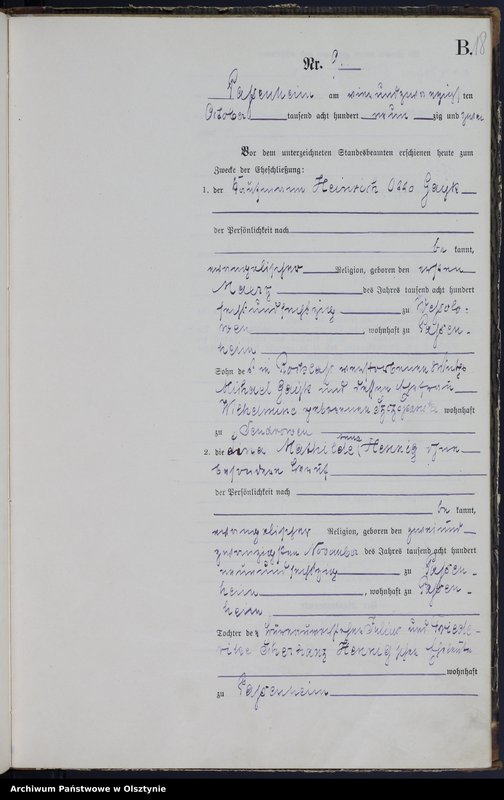 B. 18
Nr. 9.
Passenheim am vierundzwanzigsten
October tausend acht hundert neun zig und zwei
Vor dem unterzeichneten Standesbeamten erschienen heute zum
Zwecke der Eheschließung:
1. der Kaufmann Heinrich Otto Gayk
der Persönlichkeit nach
be kannt,
evangelischer Religion, geboren den ersten
Maerz des Jahres tausend acht hundert
sechsundsechzig zu
, wohnhaft zu Passen-
heim
Sohn des in verstorbenen
Michael Gayk und dessen Ehefrau
Wilhelmine geborenen wohnhaft
zu
2. die Mathilde Hennig ohne
besonderen Beruf
der Persönlichkeit nach
be kannt,
evangelischer Religion, geboren den zweiund-
zwanzigsten November des Jahres tausend acht hundert
neunundsechzig zu Passen-
heim, wohnhaft zu Passen-
heim
Tochter der Julius und Friede-
rike Hennig'schen Eheleute
wohnhaft
zu Passenheim
Archiwum Państwowe w Olsztynie